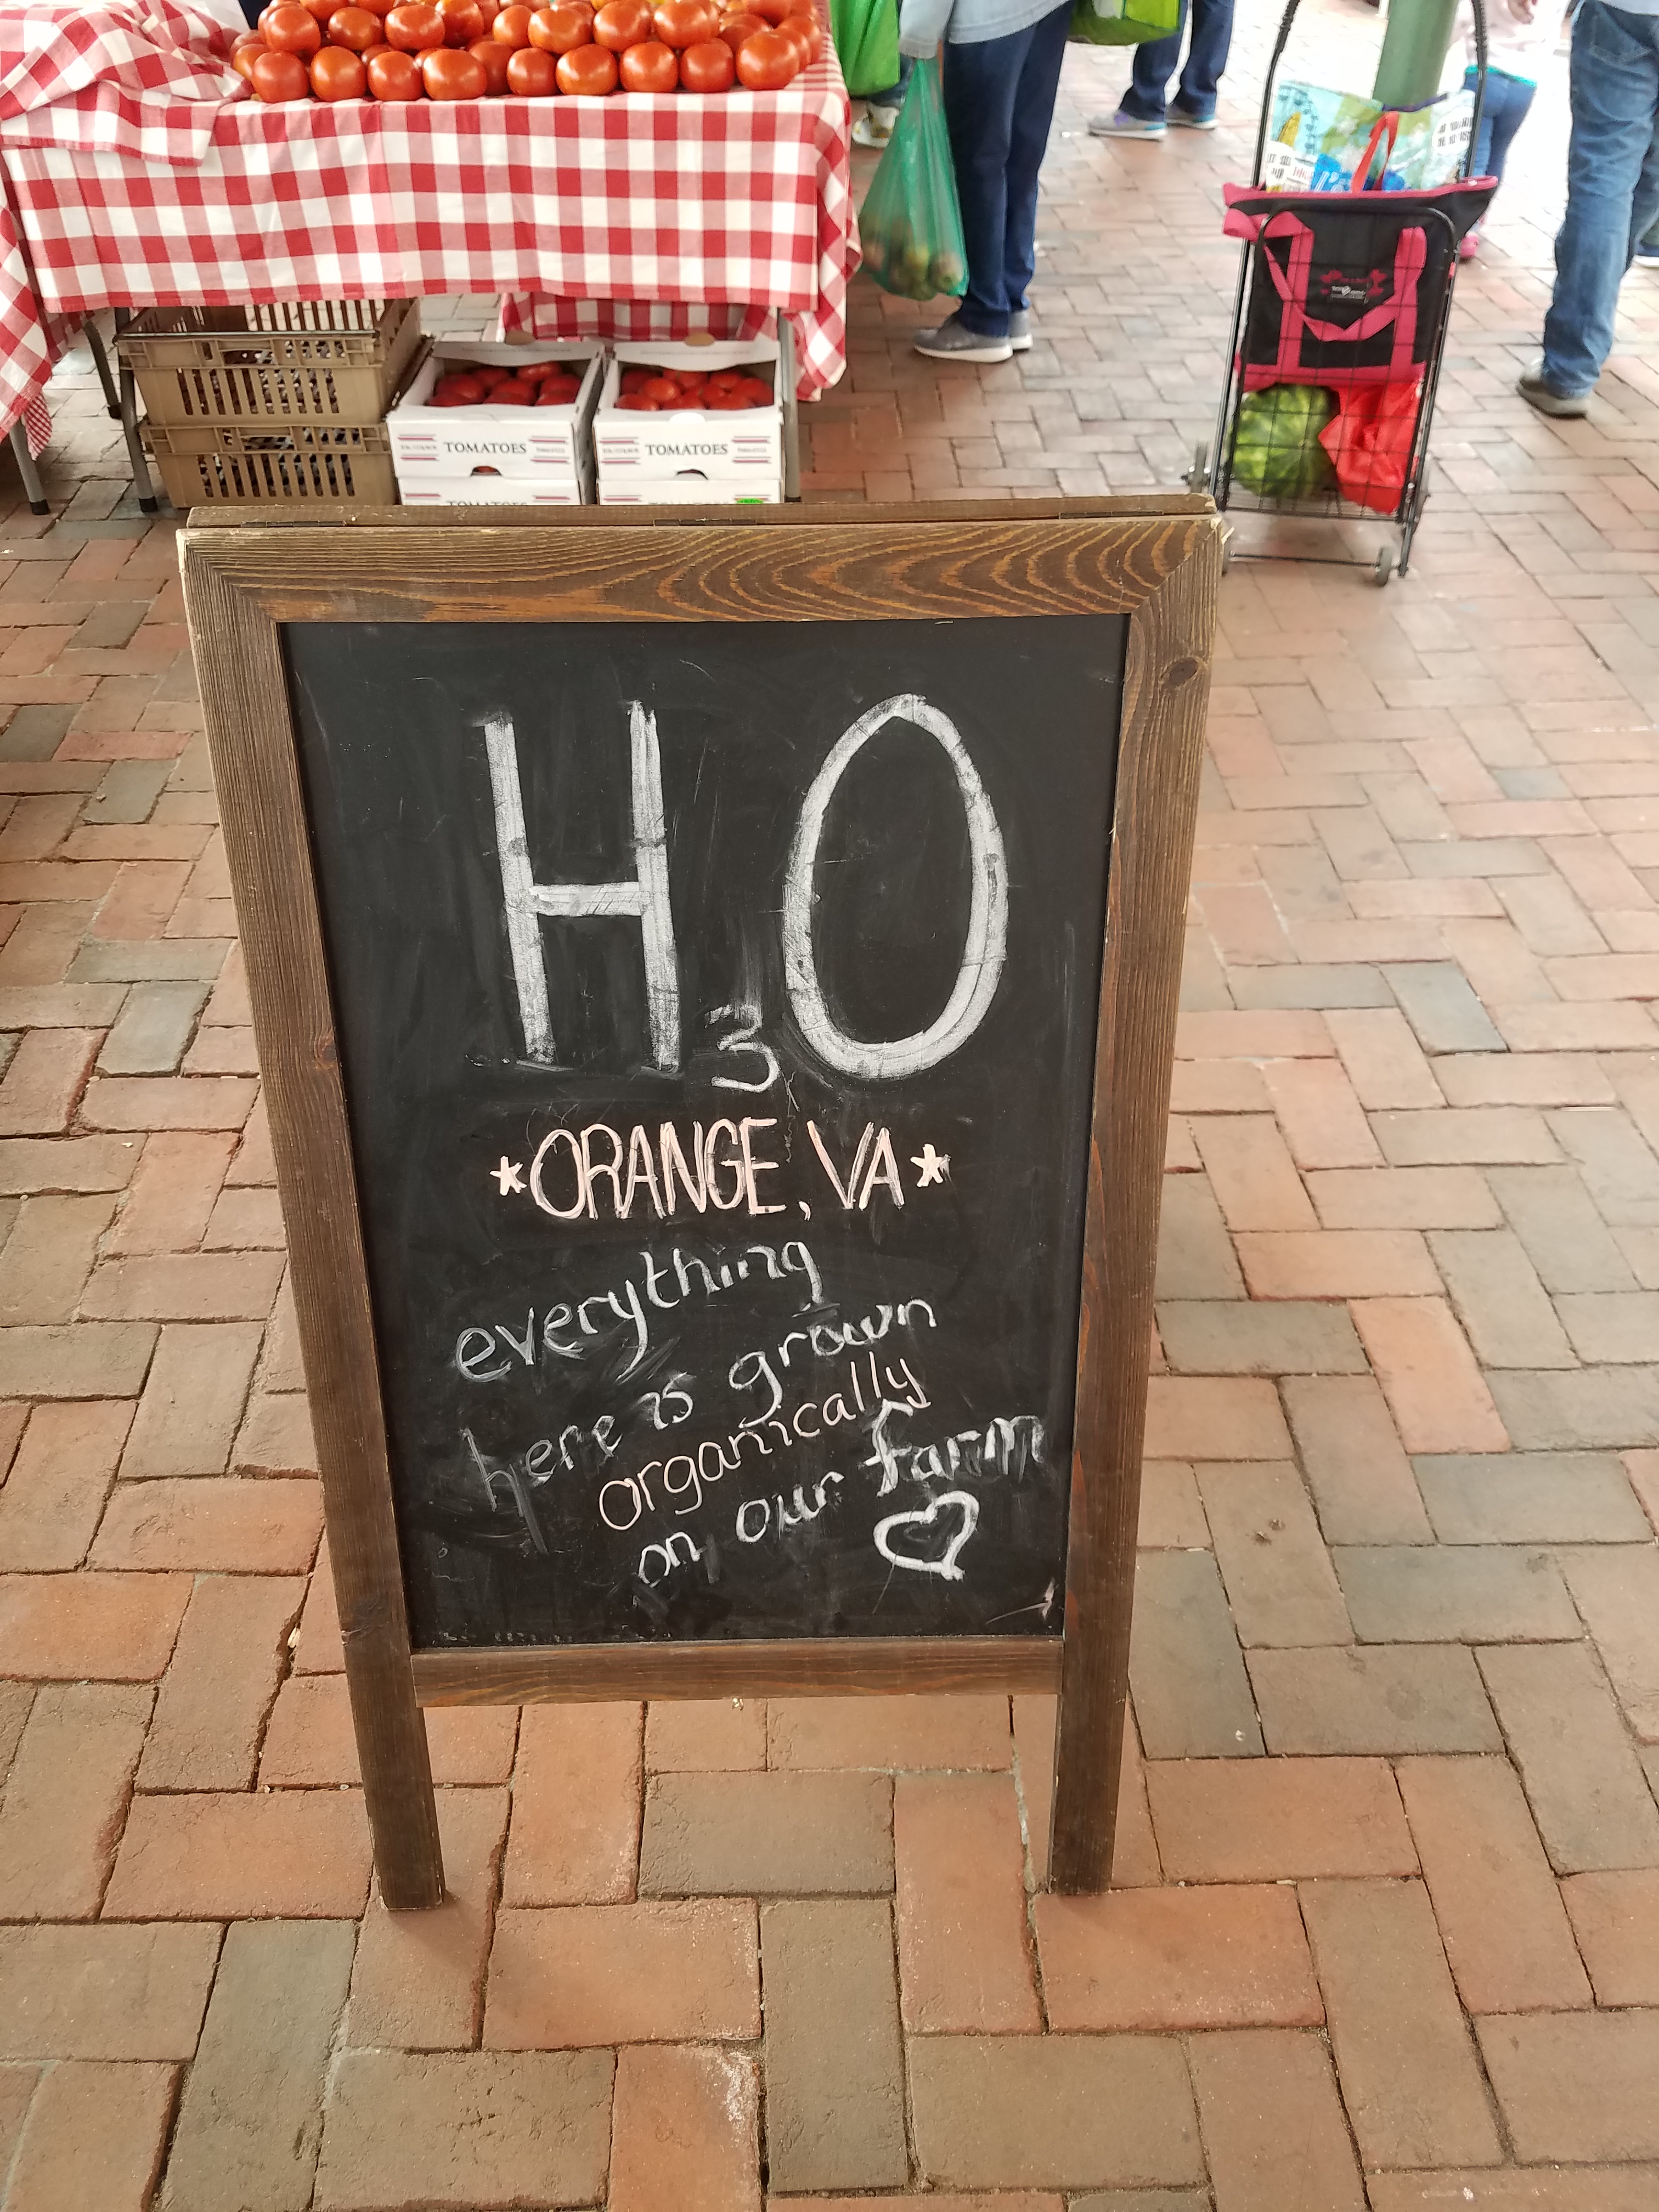 TOMATOES
TOMATOES
H₃O
*ORANGE, VA*
everything
here is grown
organically
on our farm